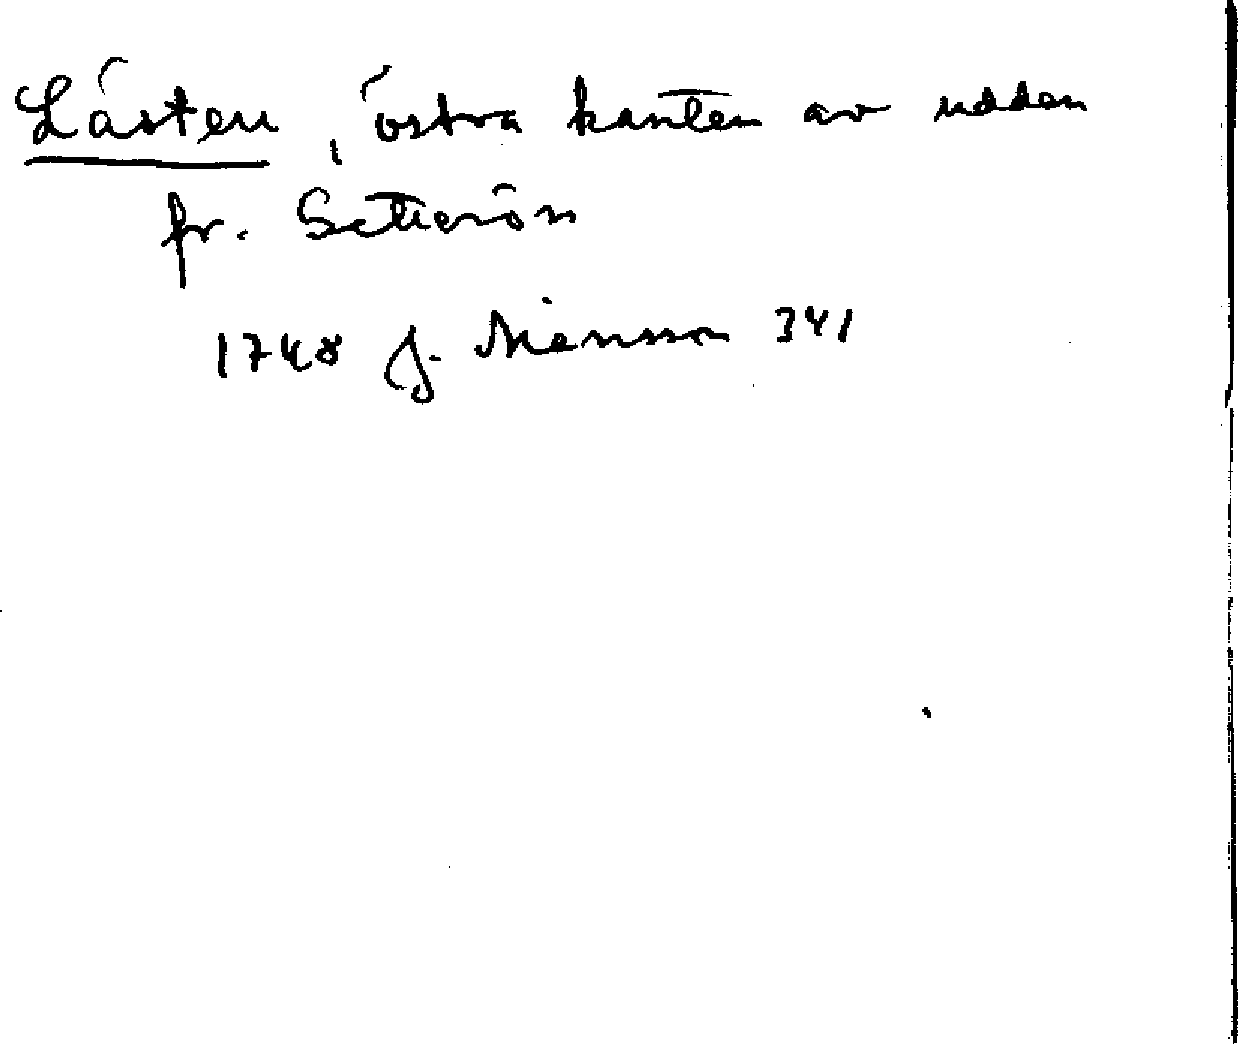 Låsten, östra kanten av udden
fr. Setterön
1748 J. Månsson 341